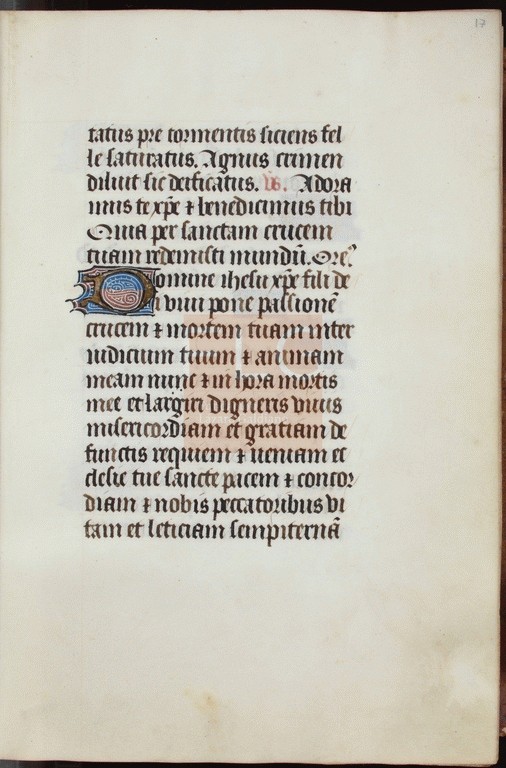 17
tatus pre tormentis siciens fel
le saturatus. Agnus crimen
diluit sic deificatus. vs. Adora
mus te xp̄e ⁊ benedicimus tibi
Quia per sanctam crucem
tuam redemisti mundū. Ore᷒
Domine ihesu xp̄e fili de
i viui pone passionē
crucem ⁊ mortem tuam inter
iudicium tuum ⁊ animam
meam nunc ⁊ in hora mortis
mee et largiri digneris viuis
misericordiam et gratiam de
functis requiem ⁊ ueniam ec
clesie tue sancte pacem ⁊ concor
diam ⁊ nobis peccatoribus vi
tam et leticiam sempiternā